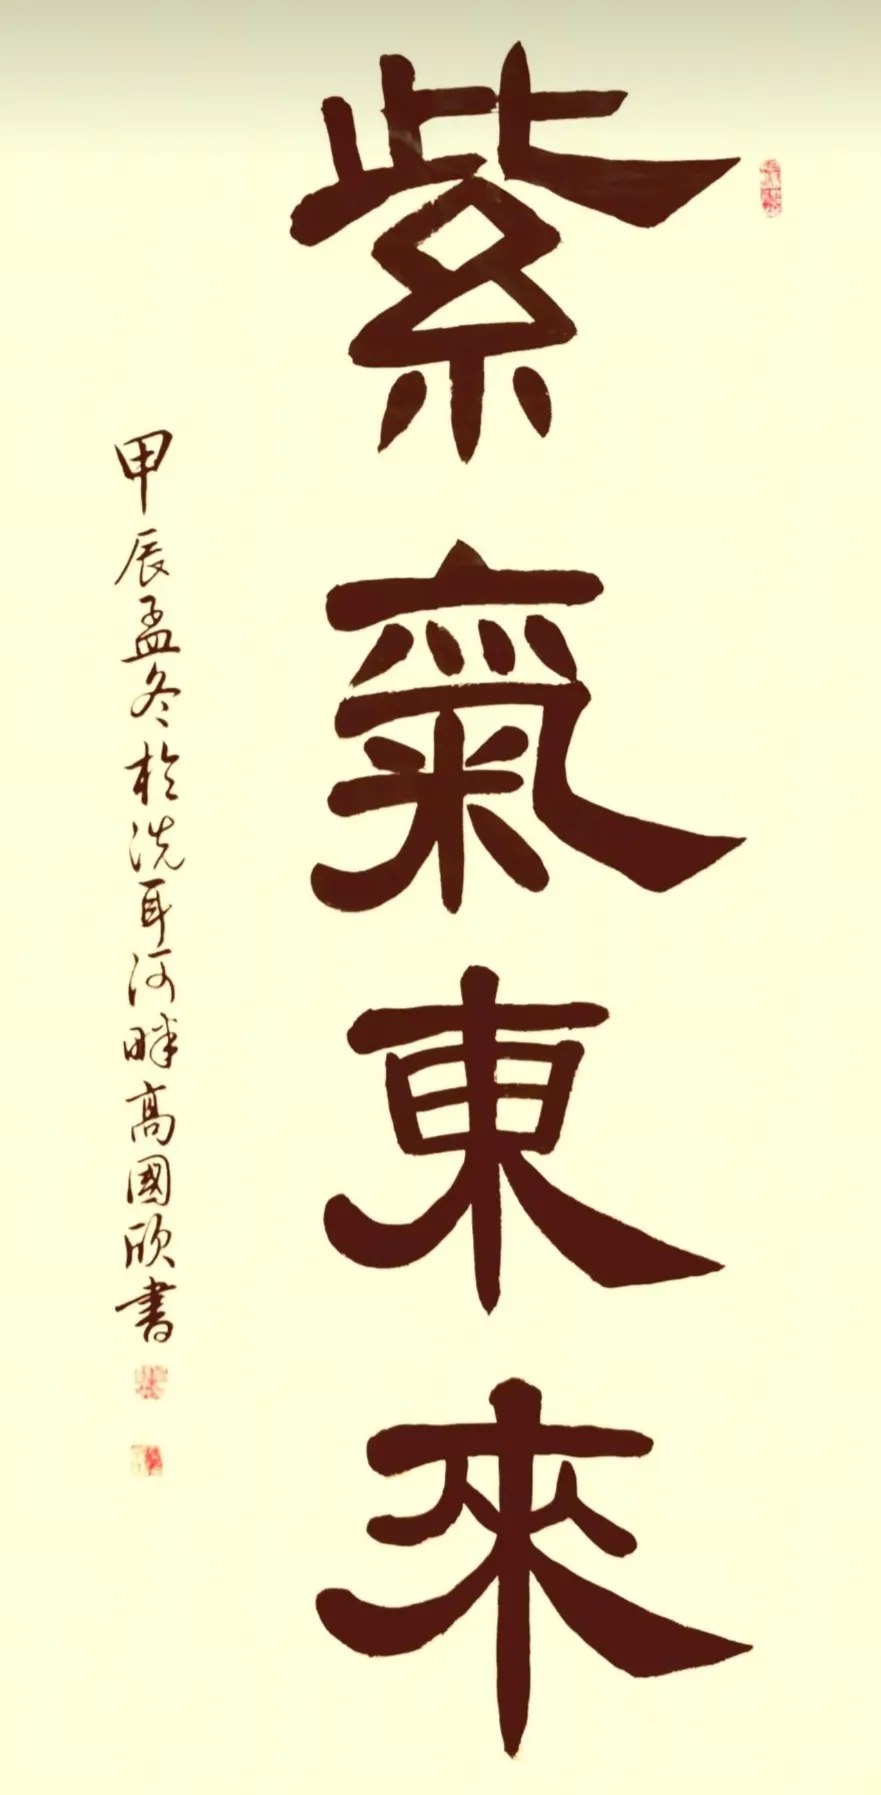 紫氣東來
甲辰孟冬於洗耳河畔高國欣書